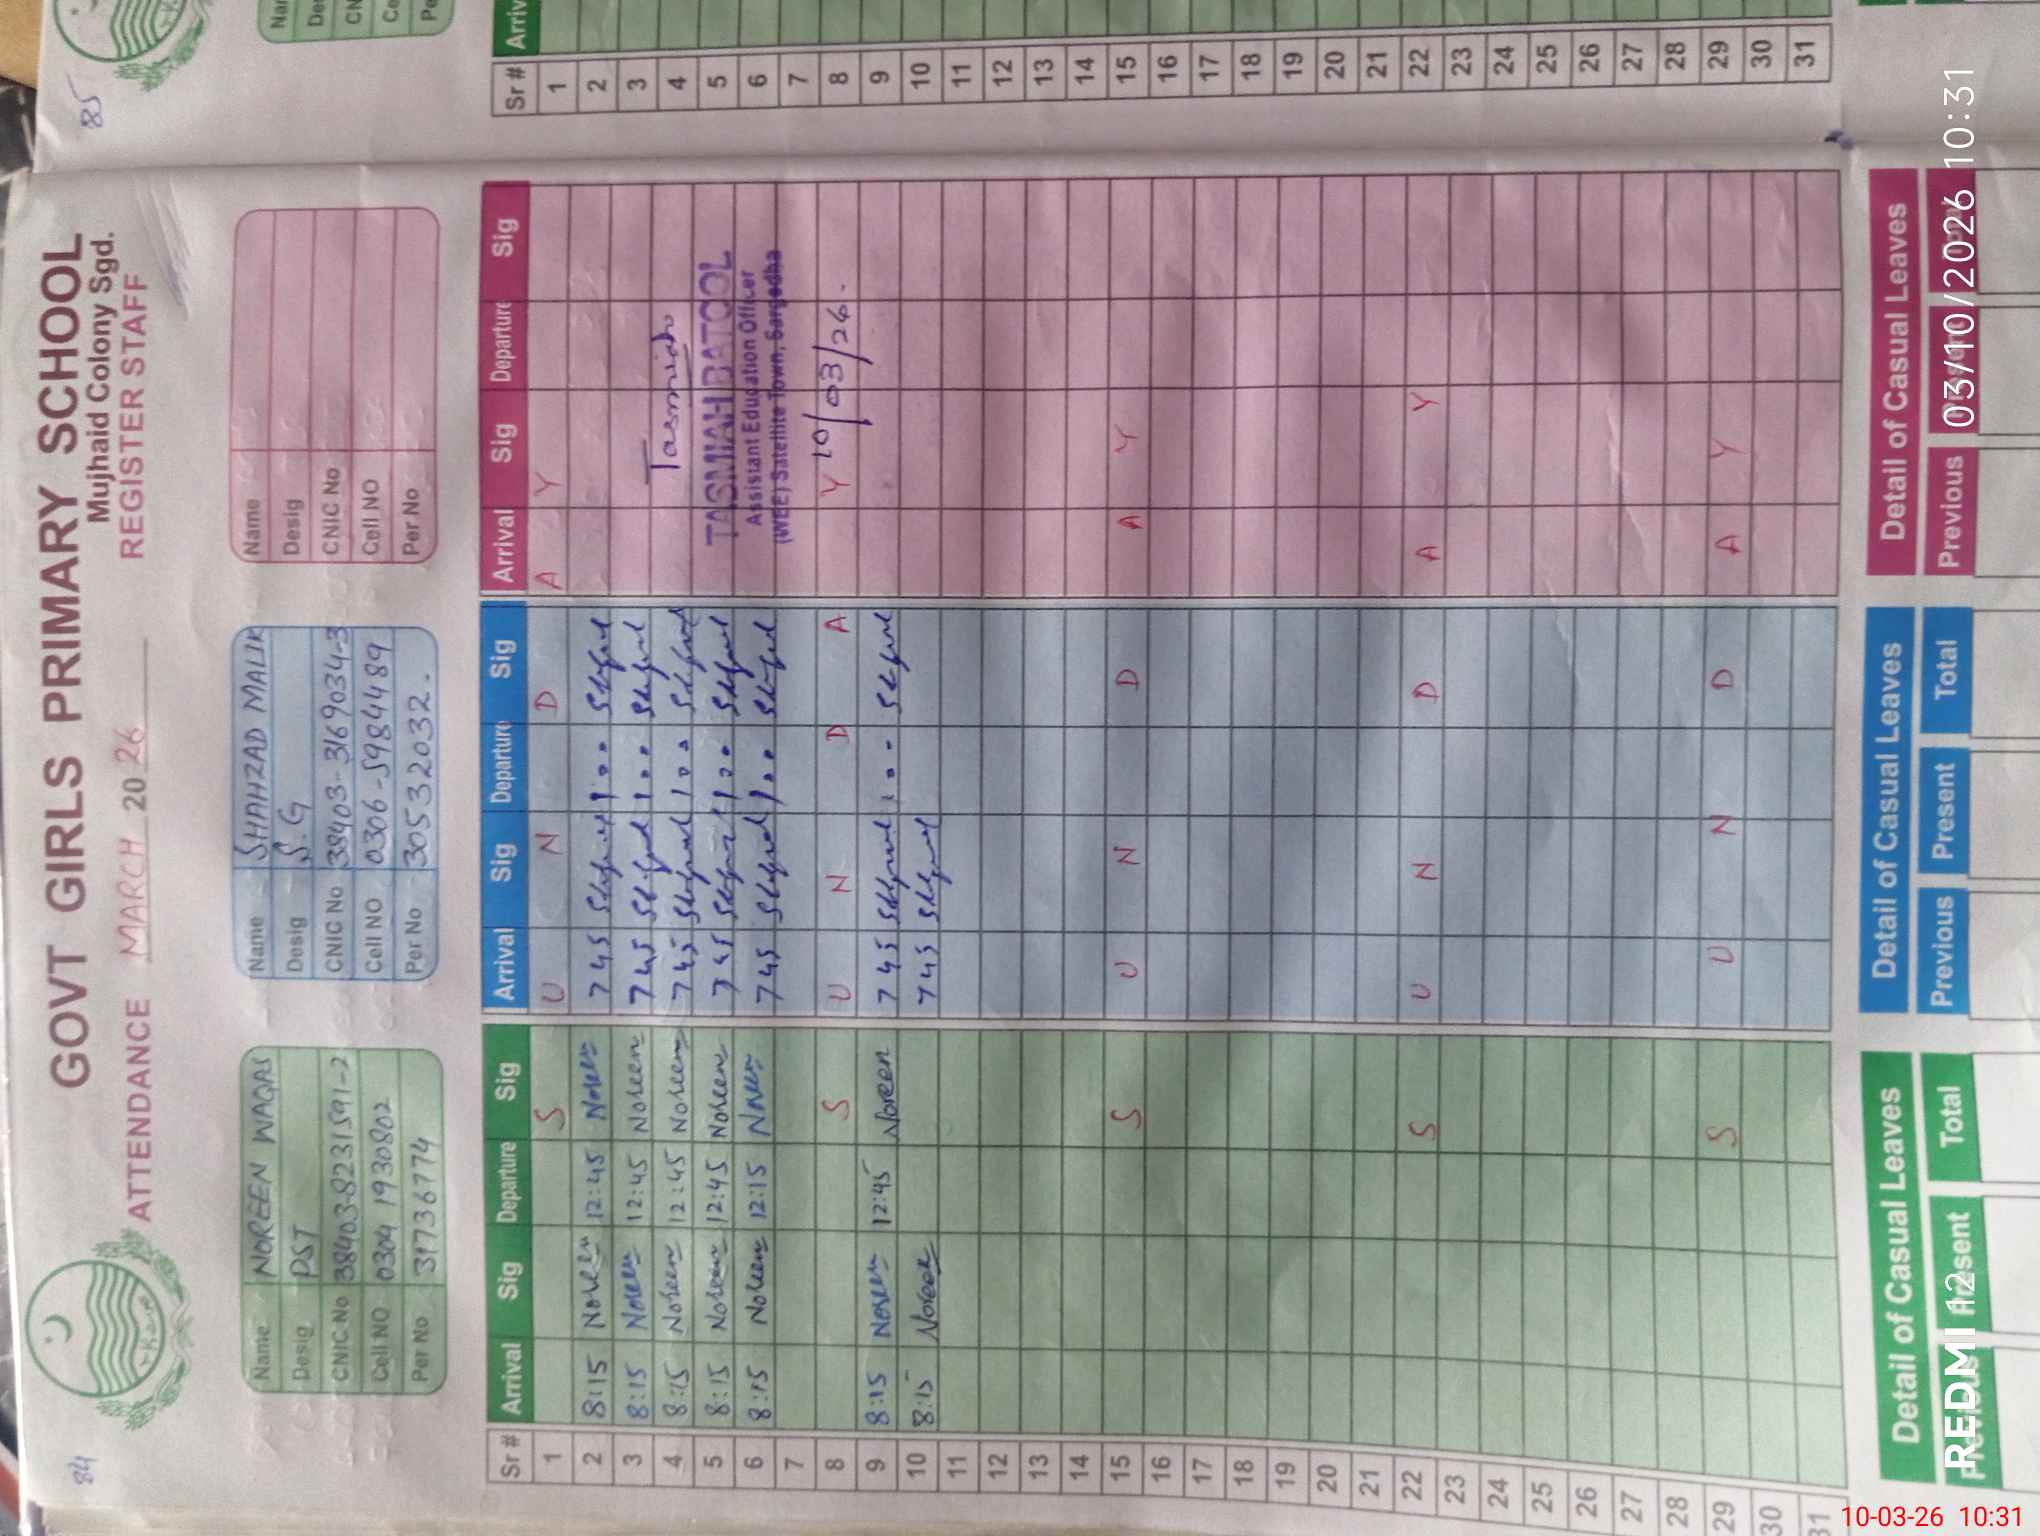 84
GOVT GIRLS PRIMARY SCHOOL
Mujhaid Colony Sgd.
ATTENDANCE MARCH 2026 REGISTER STAFF
Name NOREEN WAQAS
Desig PST
CNIC No 38403-8231591-2
Cell NO 0304 1930802
Per No 31736774
Name SHAHZAD MALIK
Desig S.G
CNIC No 38403-3169034-3
Cell NO 0306-5984489
Per No 30532032.
Name
Desig
CNIC No
Cell NO
Per No
Sr # Arrival Sig Departure Sig Arrival Sig Departure Sig Arrival Sig Departure Sig
1 S U N D A Y
2 8:15 Noreen 12:45 Noreen 745 1..
3 8:15 Noreen 12:45 Noreen 745 1..
4 8:15 Noreen 12:45 Noreen 745 100 Tasmiah
5 8:15 Noreen 12:45 Noreen 745 100 TASMIAH BATOOL
6 8:15 Noreen 12:15 Noreen 745 1.. Assistant Education Officer
(WEE) Satellite Town, Sargodha
7
8 S U N D A Y 10/03/26.
9 8:15 Noreen 12:45 Noreen 745 1..
10 8:15 Noreen 745
11
12
13
14
15 S U N D A Y
16
17
18
19
20
21
22 S U N D A Y
23
24
25
26
27
28
29 S U N D A Y
30
31
Detail of Casual Leaves Detail of Casual Leaves Detail of Casual Leaves
Previous Present Total Previous Present Total Previous
85
Sr # Arriv
1
2
3
4
5
6
7
8
9
10
11
12
13
14
15
16
17
18
19
20
21
22
23
24
25
26
27
28
29
30
31
REDMI 12
03/10/2026 10:31
10-03-26 10:31